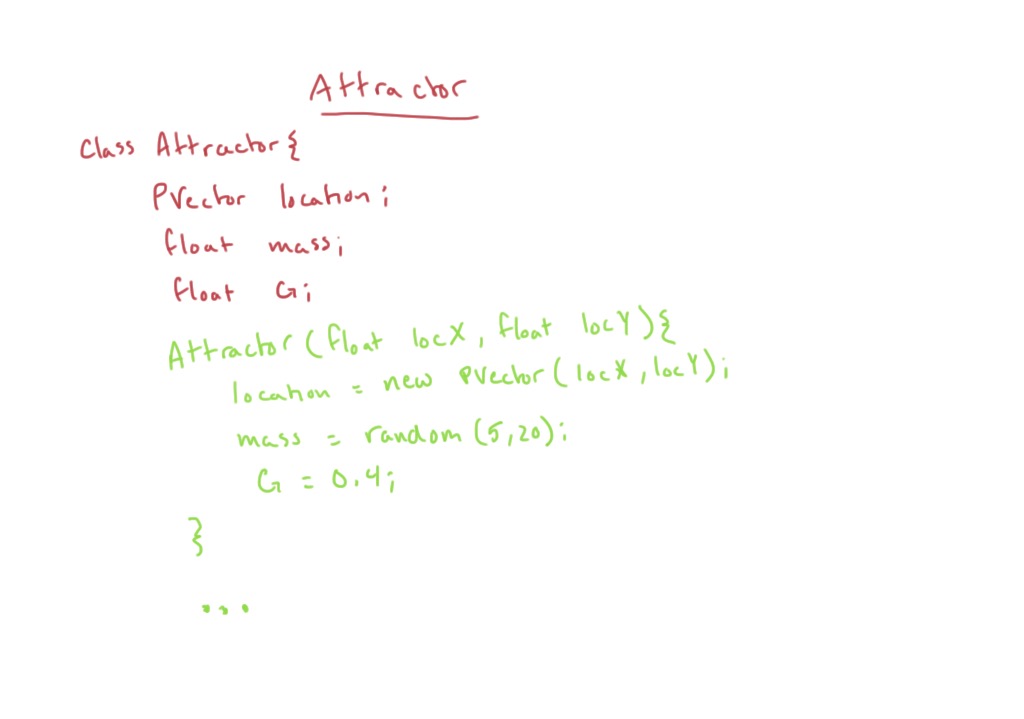 Attractor
Class Attractor{
PVector location;
float mass;
float G;
Attractor (float locX, float locY){
location = new PVector(locX, locY);
mass = random (5,20);
G = 0.4;
}
...